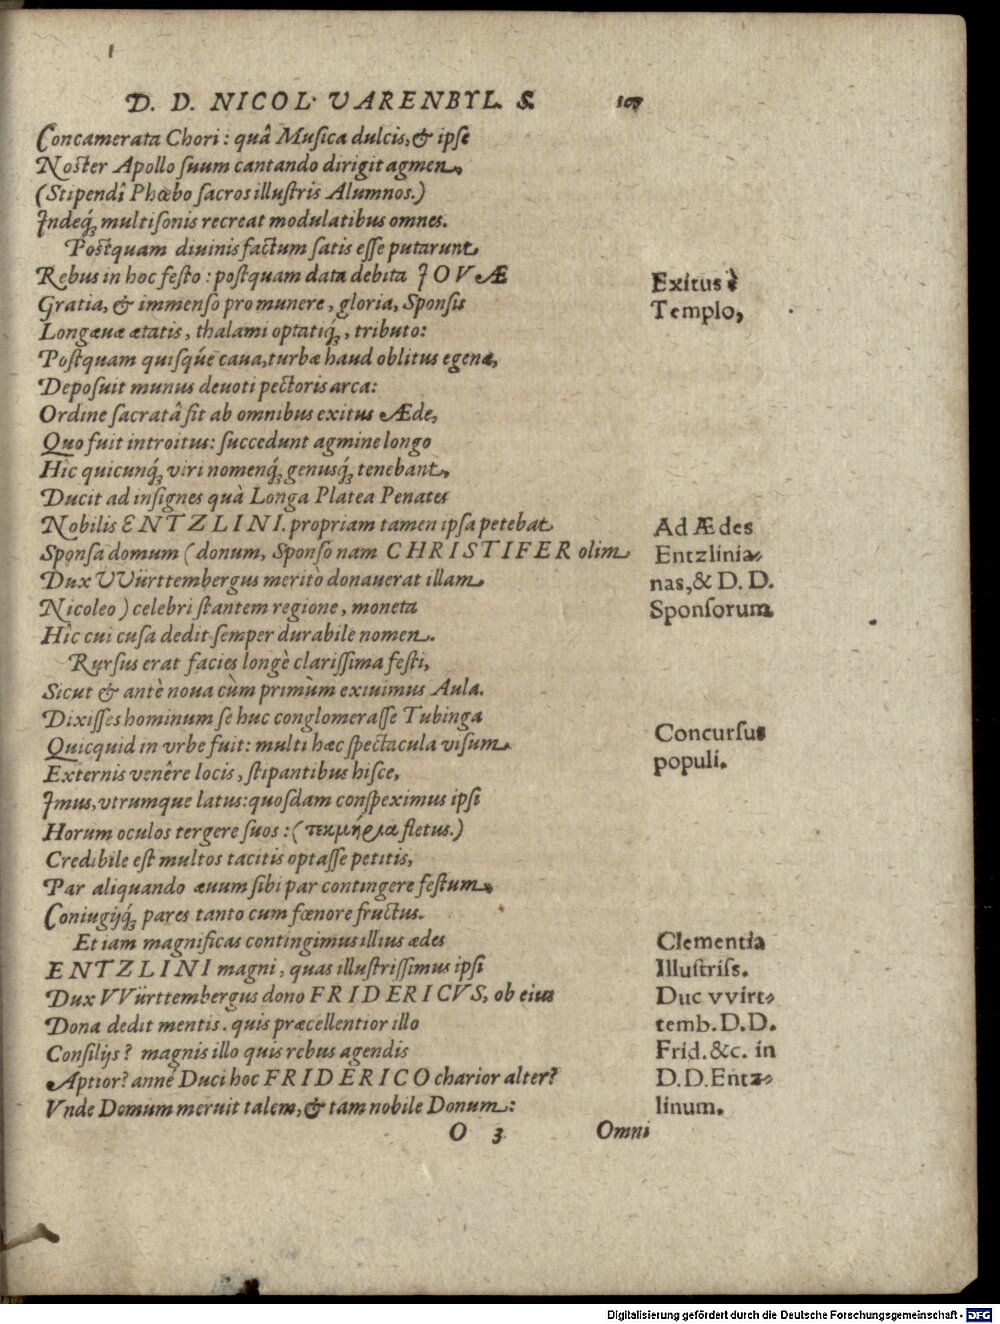 D. D. NICOL. VARENBYL. S. 107
Concamerata Chori: quâ Musica dulcis, & ipse
Noster Apollo suum cantando dirigit agmen,
(Stipendî Phœbo sacros illustris Alumnos.)
Indeq́; multisonis recreat modulatibus omnes.
Postquam diuinis factum satis esse putarunt
Rebus in hoc festo: postquam data debita JOVÆ
Exitus è
Gratia, & immenso pro munere, gloria, Sponsis
Templo,
Longæuæ ætatis, thalami optatiq́;, tributo:
Postquam quisqúe caua, turbæ haud oblitus egenæ,
Deposuit munus deuoti pectoris arca:
Ordine sacratâ fit ab omnibus exitus Æde,
Quo fuit introitus: succedunt agmine longo
Hîc quicunq́; viri nomenq́; genusq́; tenebant,
Ducit ad insignes quà Longa Platea Penates
Nobilis ENTZLINI. propriam tamen ipsa petebat
Ad Ædes
Sponsa domum (donum, Sponso nam CHRISTIFER olim
Entzlinia-
Dux VVürttembergus meritò donauerat illam
nas, & D. D.
Nicoleo) celebri stantem regione, moneta
Sponsorum
Hîc cui cusa dedit semper durabile nomen.
Rursus erat facies longè clarissima festi,
Sicut & antè noua cùm primùm exiuimus Aula.
Dixisses hominum se huc conglomerasse Tubinga
Concursus
Quicquid in vrbe fuit: multi hæc spectacula visum
populi.
Externis venêre locis, stipantibus hisce,
Imus, vtrumque latus: quosdam conspeximus ipsi
Horum oculos tergere suos: (τεκμήρια fletus.)
Credibile est multos tacitis optasse petitis,
Par aliquando æuum sibi par contingere festum,
Coniugijq́; pares tanto cum fœnore fructus.
Et iam magnificas contingimus illius ædes
Clementia
ENTZLINI magni, quas illustrissimus ipsi
Illustriss.
Dux VVürttembergus dono FRIDERICVS, ob eius
Duc vvirt-
Dona dedit mentis. quis præcellentior illo
temb. D. D.
Consilijs? magnis illo quis rebus agendis
Frid. &c. in
Aptior? anne Duci hoc FRIDERICO charior alter?
D. D. Entz-
Vnde Domum meruit talem, & tam nobile Donum:
linum.
O 3 Omni
Digitalisierung gefördert durch die Deutsche Forschungsgemeinschaft - DFG